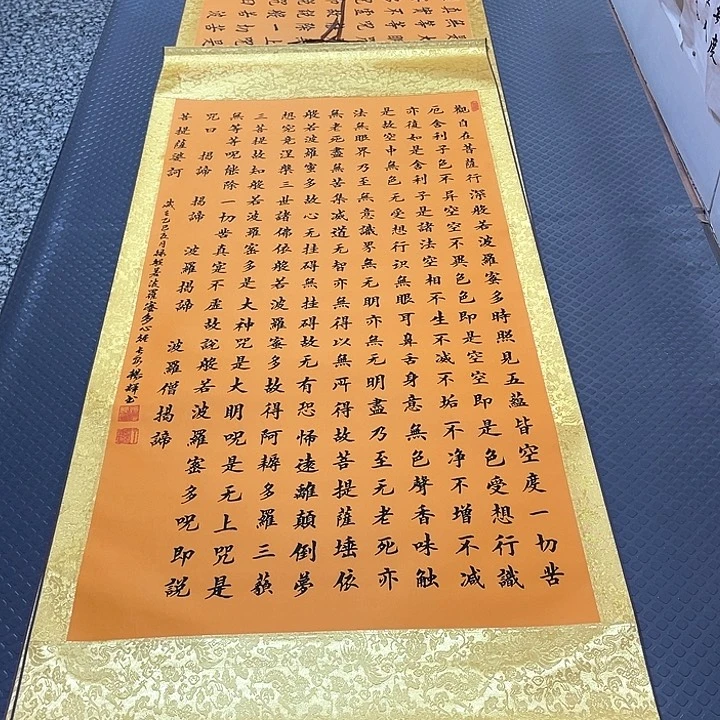 觀自在菩薩行深般若波羅蜜多時照見五蘊皆空度一切苦
厄舍利子色不异空空不異色色即是空空即是色受想行識
亦復如是舍利子是諸法空相不生不减不垢不净不增不减
是故空中無色无受想行识無眼耳鼻舌身意無色聲香味触
法無眼界乃至無意識界無无明亦無无明盡乃至无老死亦
無老死盡無苦集减道无智亦無得以無所得故菩提薩埵依
般若波羅蜜多故心无挂碍無挂碍故无有恐怖遠離顛倒夢
想究竟涅槃三世諸佛依般若波羅蜜多故得阿耨多羅三藐
三菩提故知般若波羅蜜多是大神咒是大明呪是无上咒是
無等等呪能除一切苦真实不虚故説般若波羅蜜多呪即説
咒曰 揭諦 揭諦 波羅揭諦 波羅僧揭諦
菩提薩婆訶
歲在乙巳夏月録般若波羅蜜多心经